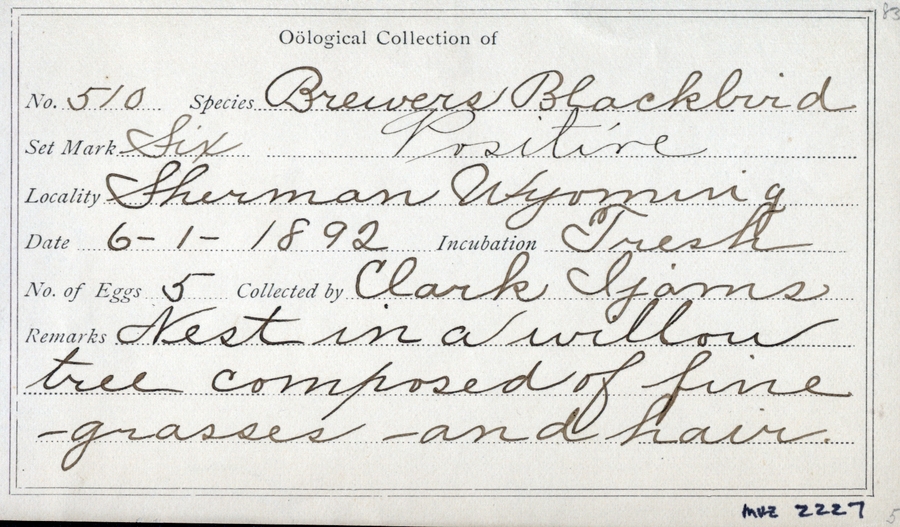 83
Oölogical Collection of
No. 510 Species Brewers Blackbird
Set Mark Six Positive
Locality Sherman Wyoming
Date 6-1-1892 Incubation Fresh
No. of Eggs 5 Collected by Clark Ijams
Remarks Nest in a willow
tree composed of fine
-grasses -and hair.
MVZ 2227
5